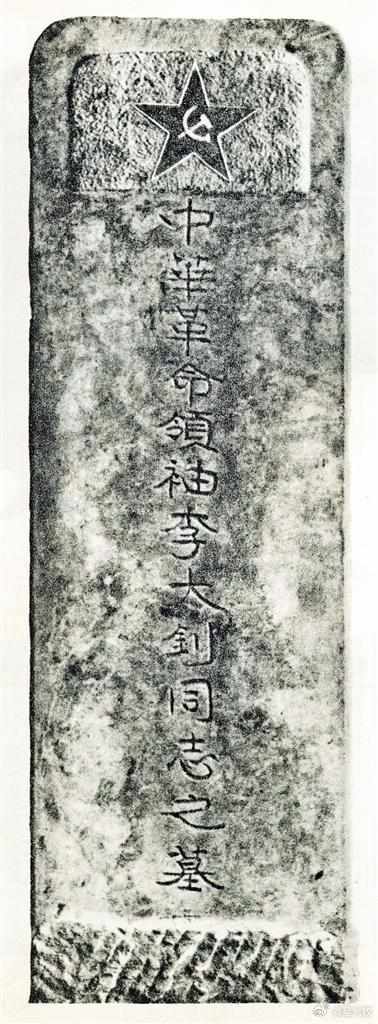 中華革命領袖李大釗同志之墓